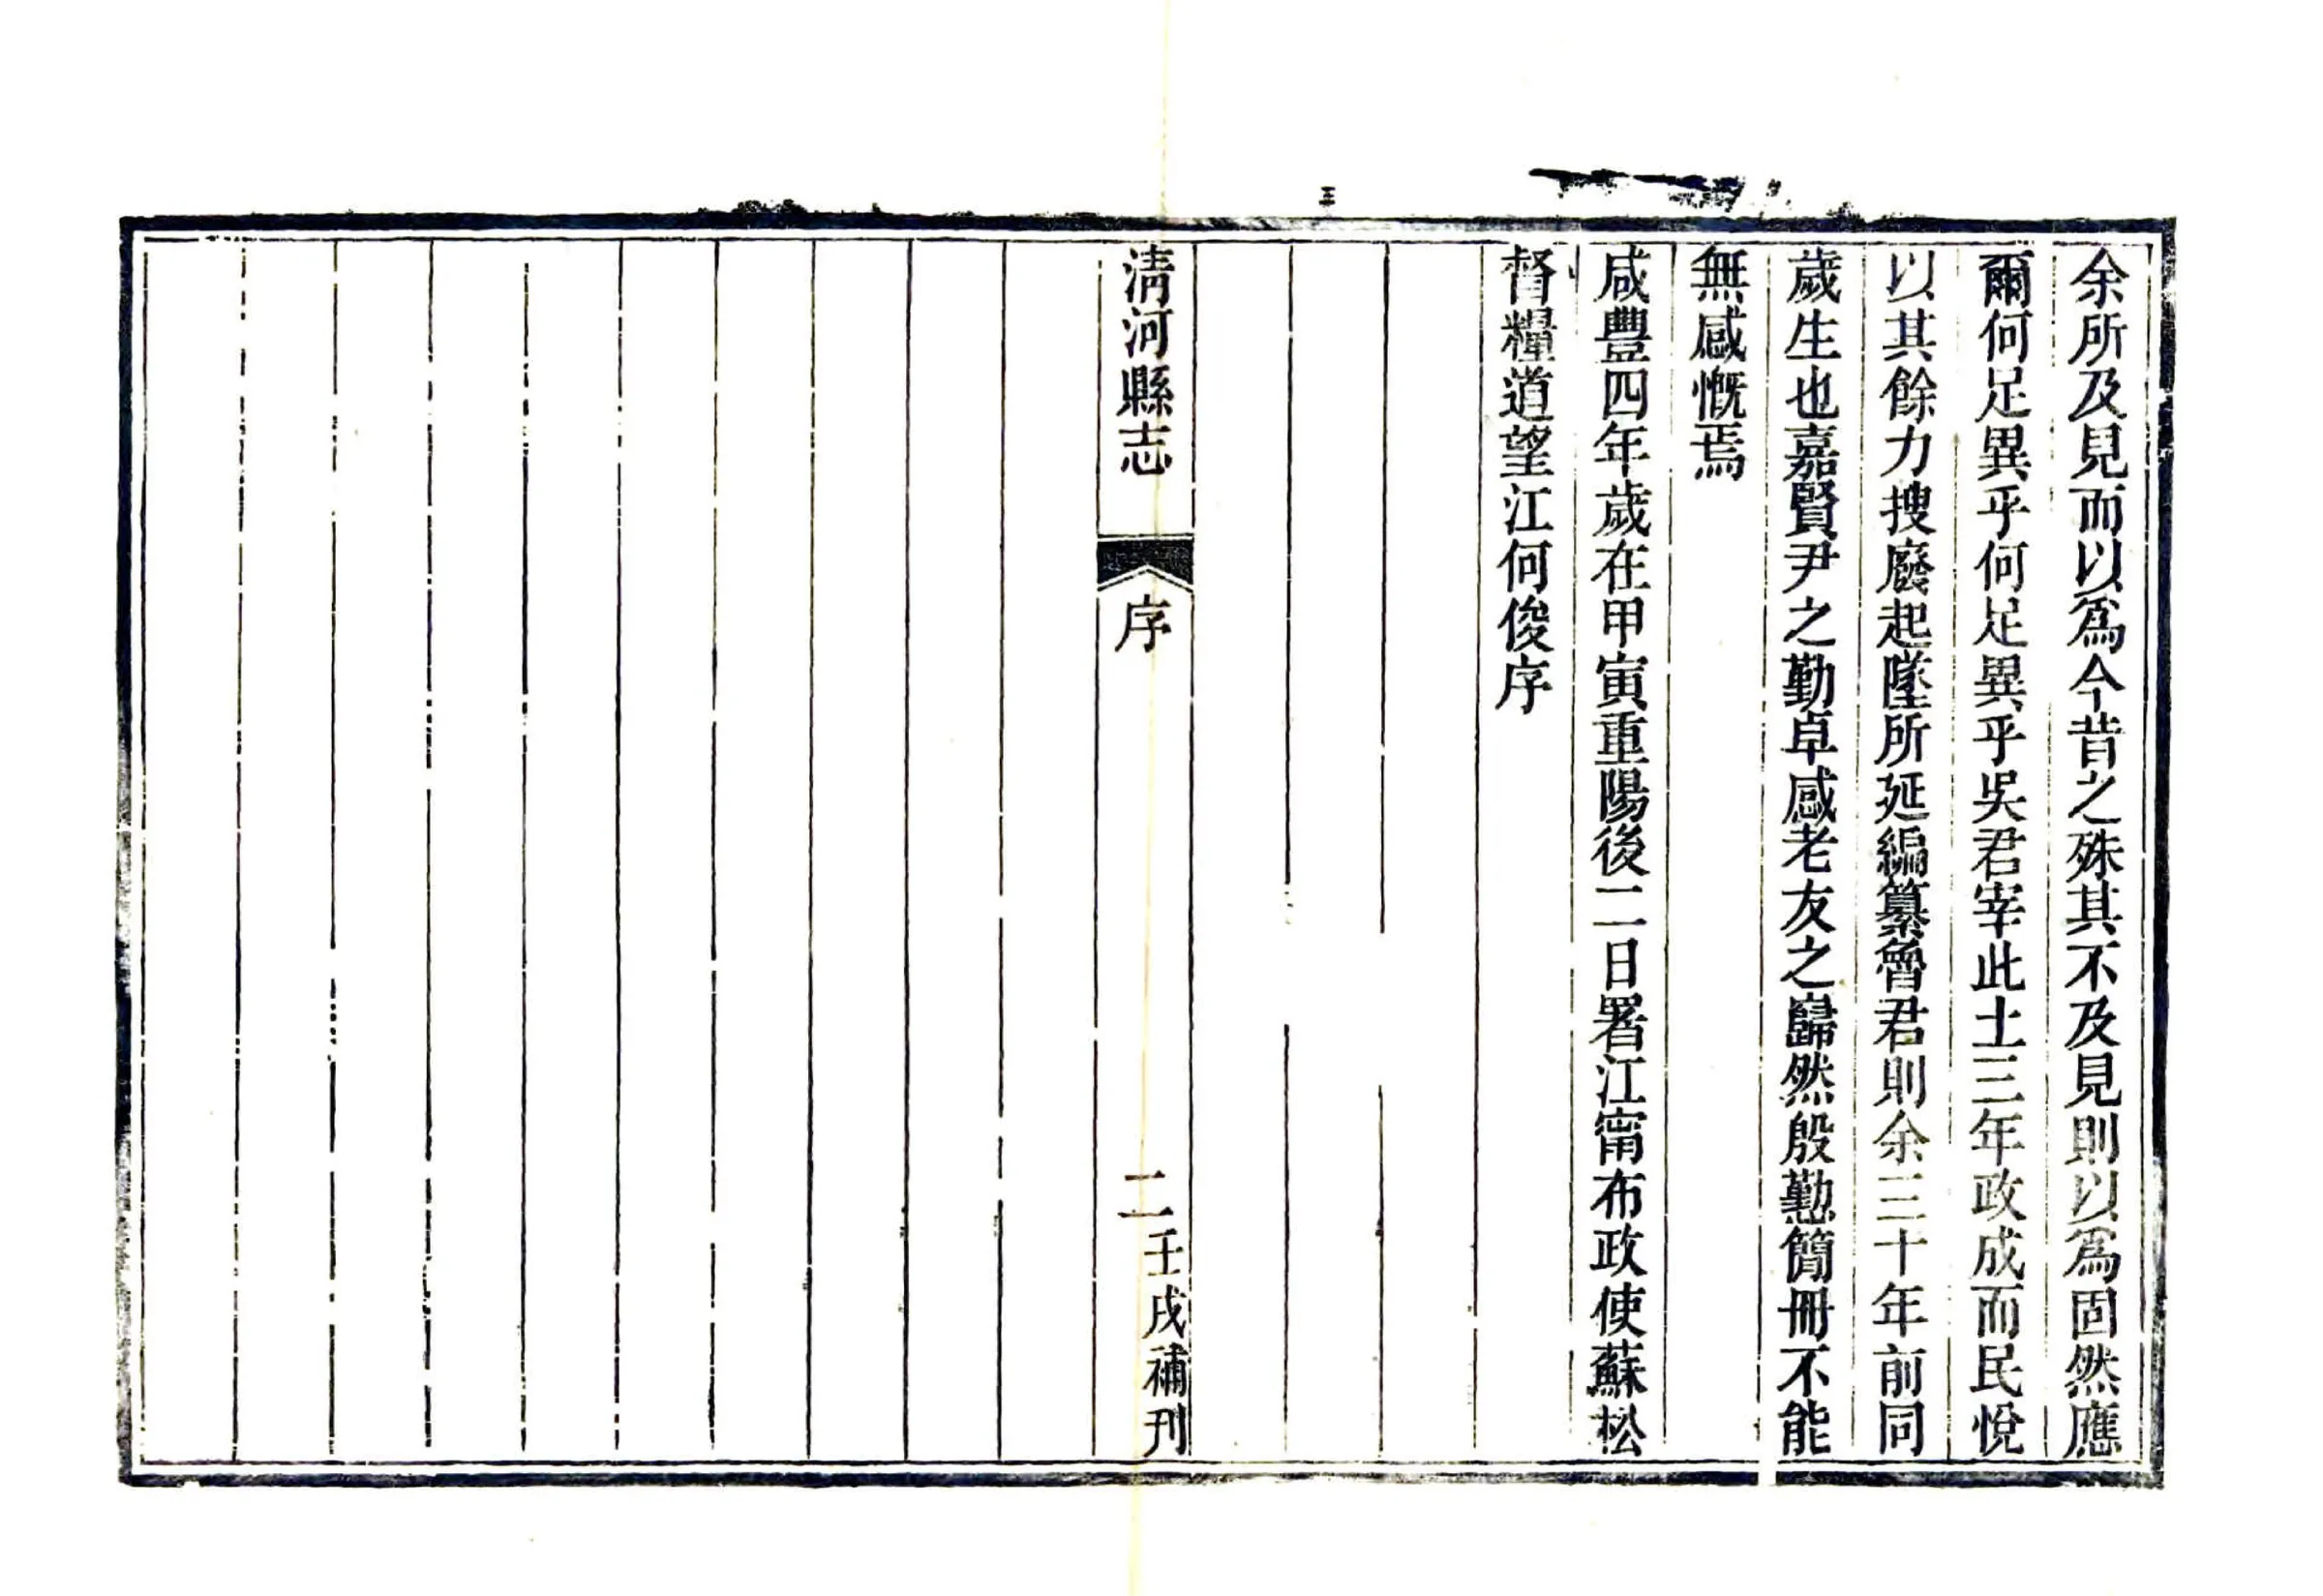 余所及見而以爲今昔之殊其不及見則以爲固然應
爾何足異乎何足異乎吳君宰此土三年政成而民悅
以其餘力搜廢起墜所延編纂魯君則余三十年前同
歲生也嘉賢尹之勤卓感老友之巋然殷勤簡冊不能
無感慨焉
咸豐四年歲在甲寅重陽後二日署江甯布政使蘇松
督糧道望江何俊序
清河縣志
序
二
壬戌補刊
三